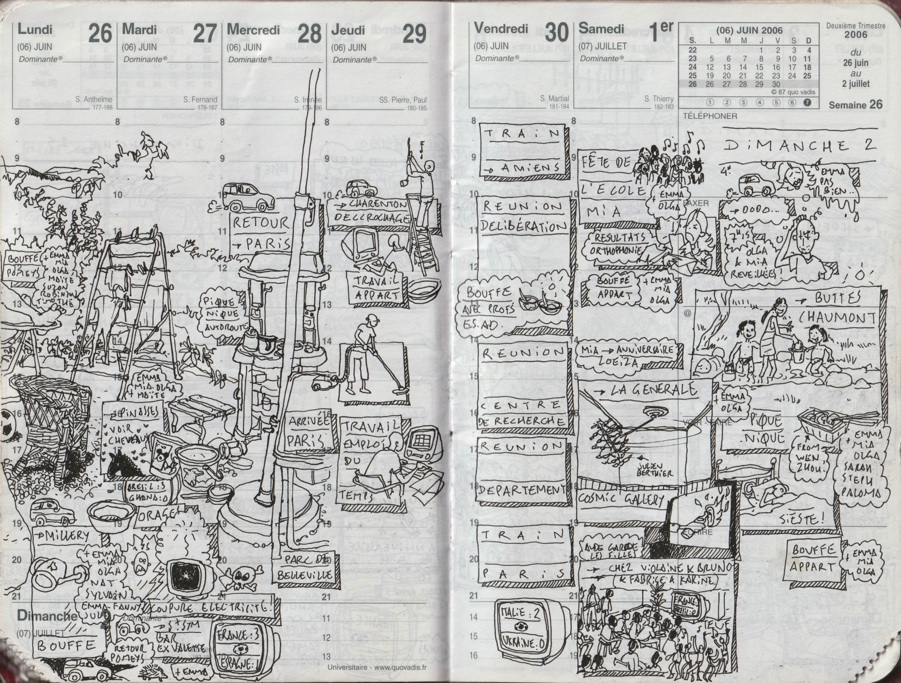 Lundi 26
(06) JUIN
Dominante®
S. Anthelme
177-188
Mardi 27
(06) JUIN
Dominante®
S. Fernand
Mercredi 28
(06) JUIN
Dominante®
Jeudi 29
(06) JUIN
Dominante®
SS. Pierre, Paul
180-185
Vendredi 30
(06) JUIN
Dominante®
S. Martial
181-184
Samedi 1er
(07) JUILLET
Dominante®
S. Thierry
182-183
(06) JUIN 2006
S. L M M J V S D
22 1 2 3 4
23 5 6 7 8 9 10 11
24 12 13 14 15 16 17 18
25 19 20 21 22 23 24 25
26 26 27 28 29 30
© 87 quo vadis
1 2 3 4 5 6 7
Deuxième Trimestre
2006
du
26 juin
au
2 juillet
Semaine 26
TÉLÉPHONER
BOUFFE
POMEYS
EMMA
MIA
OLGA
MOÏTE
EMMA
MIA OLGA
+ MOÏTE
VOIR
CHEVEAUX
BRESIL: 3
GHANA: 0
→ MILLERY
ORAGE
+ EMMA
MIA
OLGA
NAT
SYLVAIN
COUPURE ELECTRICITÉ!
Dimanche
(07) JUILLET
BOUFFE
RETOUR
POMEYS
BAR
EX VALETTE
FRANCE: 3
ESPAGNE: 1
+ EMMA
RETOUR
→ PARIS
PIQUE
NIQUE
AUTOROUTE
ARRIVÉE
PARIS
PARC DE
BELLEVILLE
→ CHARENTON
DECCROCHAGE
TRAVAIL
APPART
TRAVAIL
EMPLOI
DU
TEMPS
Universitaire - www.quovadis.fr
TRAIN
→ AMIENS
REUNION
DELIBÉRATION
BOUFFE
AVEC PROFS
ESAD
REUNION
CENTRE
DE RECHERCHE
REUNION
DEPARTEMENT
TRAIN
PARIS
ITALIE: 2
UKRAINE: 0
FÊTE DE
L'ECOLE
MIA
EMMA
OLGA
RESULTATS
ORTHOPHONIE
BOUFFE
APPART
+ EMMA
MIA
OLGA
MIA → ANNIVERSAIRE
LOEIZA
→ LA GENERALE
JULIEN
BERTHIER
COSMIC GALLERY
→ CHEZ VIOLAINE & BRUNO
& FABRICE & KARINE
DIMANCHE 2
EMMA
PAS
BIEN...
→ DODO...
OLGA
& MIA
REVEILLÉES!
→ BUTTES
CHAUMONT
EMMA
OLGA
PIQUE
NIQUE
FROM
WEN
ZHOU
+ EMMA
MIA
OLGA
SARAH
STEPH
PALOMA
SIESTE!
BOUFFE
APPART
+ EMMA
MIA
OLGA